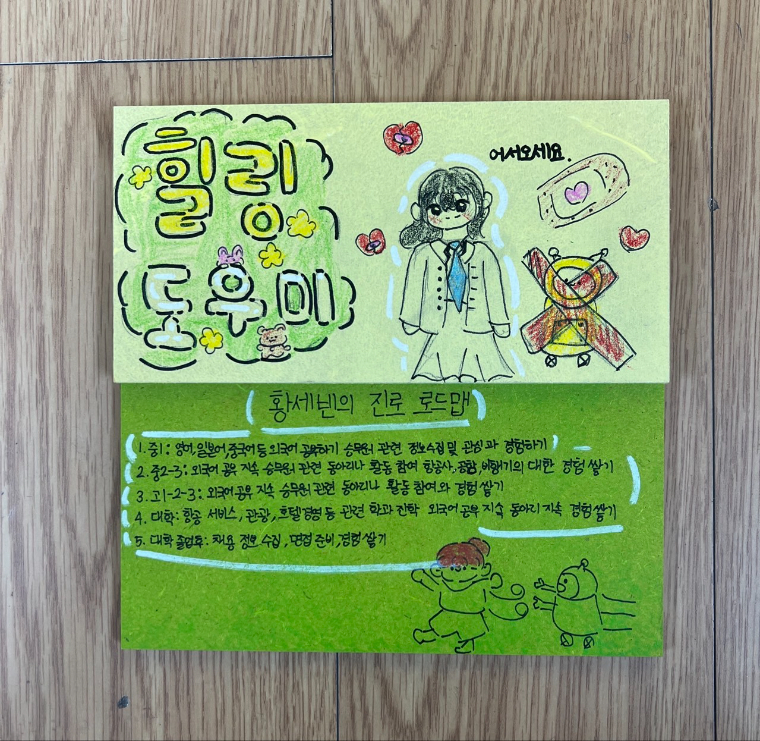 힐링
도우미
어서오세요.
황세빈의 진로 로드맵
1. 중1: 영어, 일본어, 중국어 등 외국어 공부하기 승무원 관련 정보수집 및 관심과 경험하기
2. 중2-3: 외국어 공부 지속 승무원 관련 동아리나 활동 참여 항공사, 공항, 비행기의 대한 경험 쌓기
3. 고1-2-3: 외국어 공부 지속 승무원 관련 동아리나 활동 참여와 경험 쌓기
4. 대학: 항공 서비스, 관광, 호텔경영 등 관련 학과 진학 외국어 공부 지속 동아리 지속 경험 쌓기
5. 대학 졸업후: 채용 정보 수집, 면접 준비, 경험 쌓기